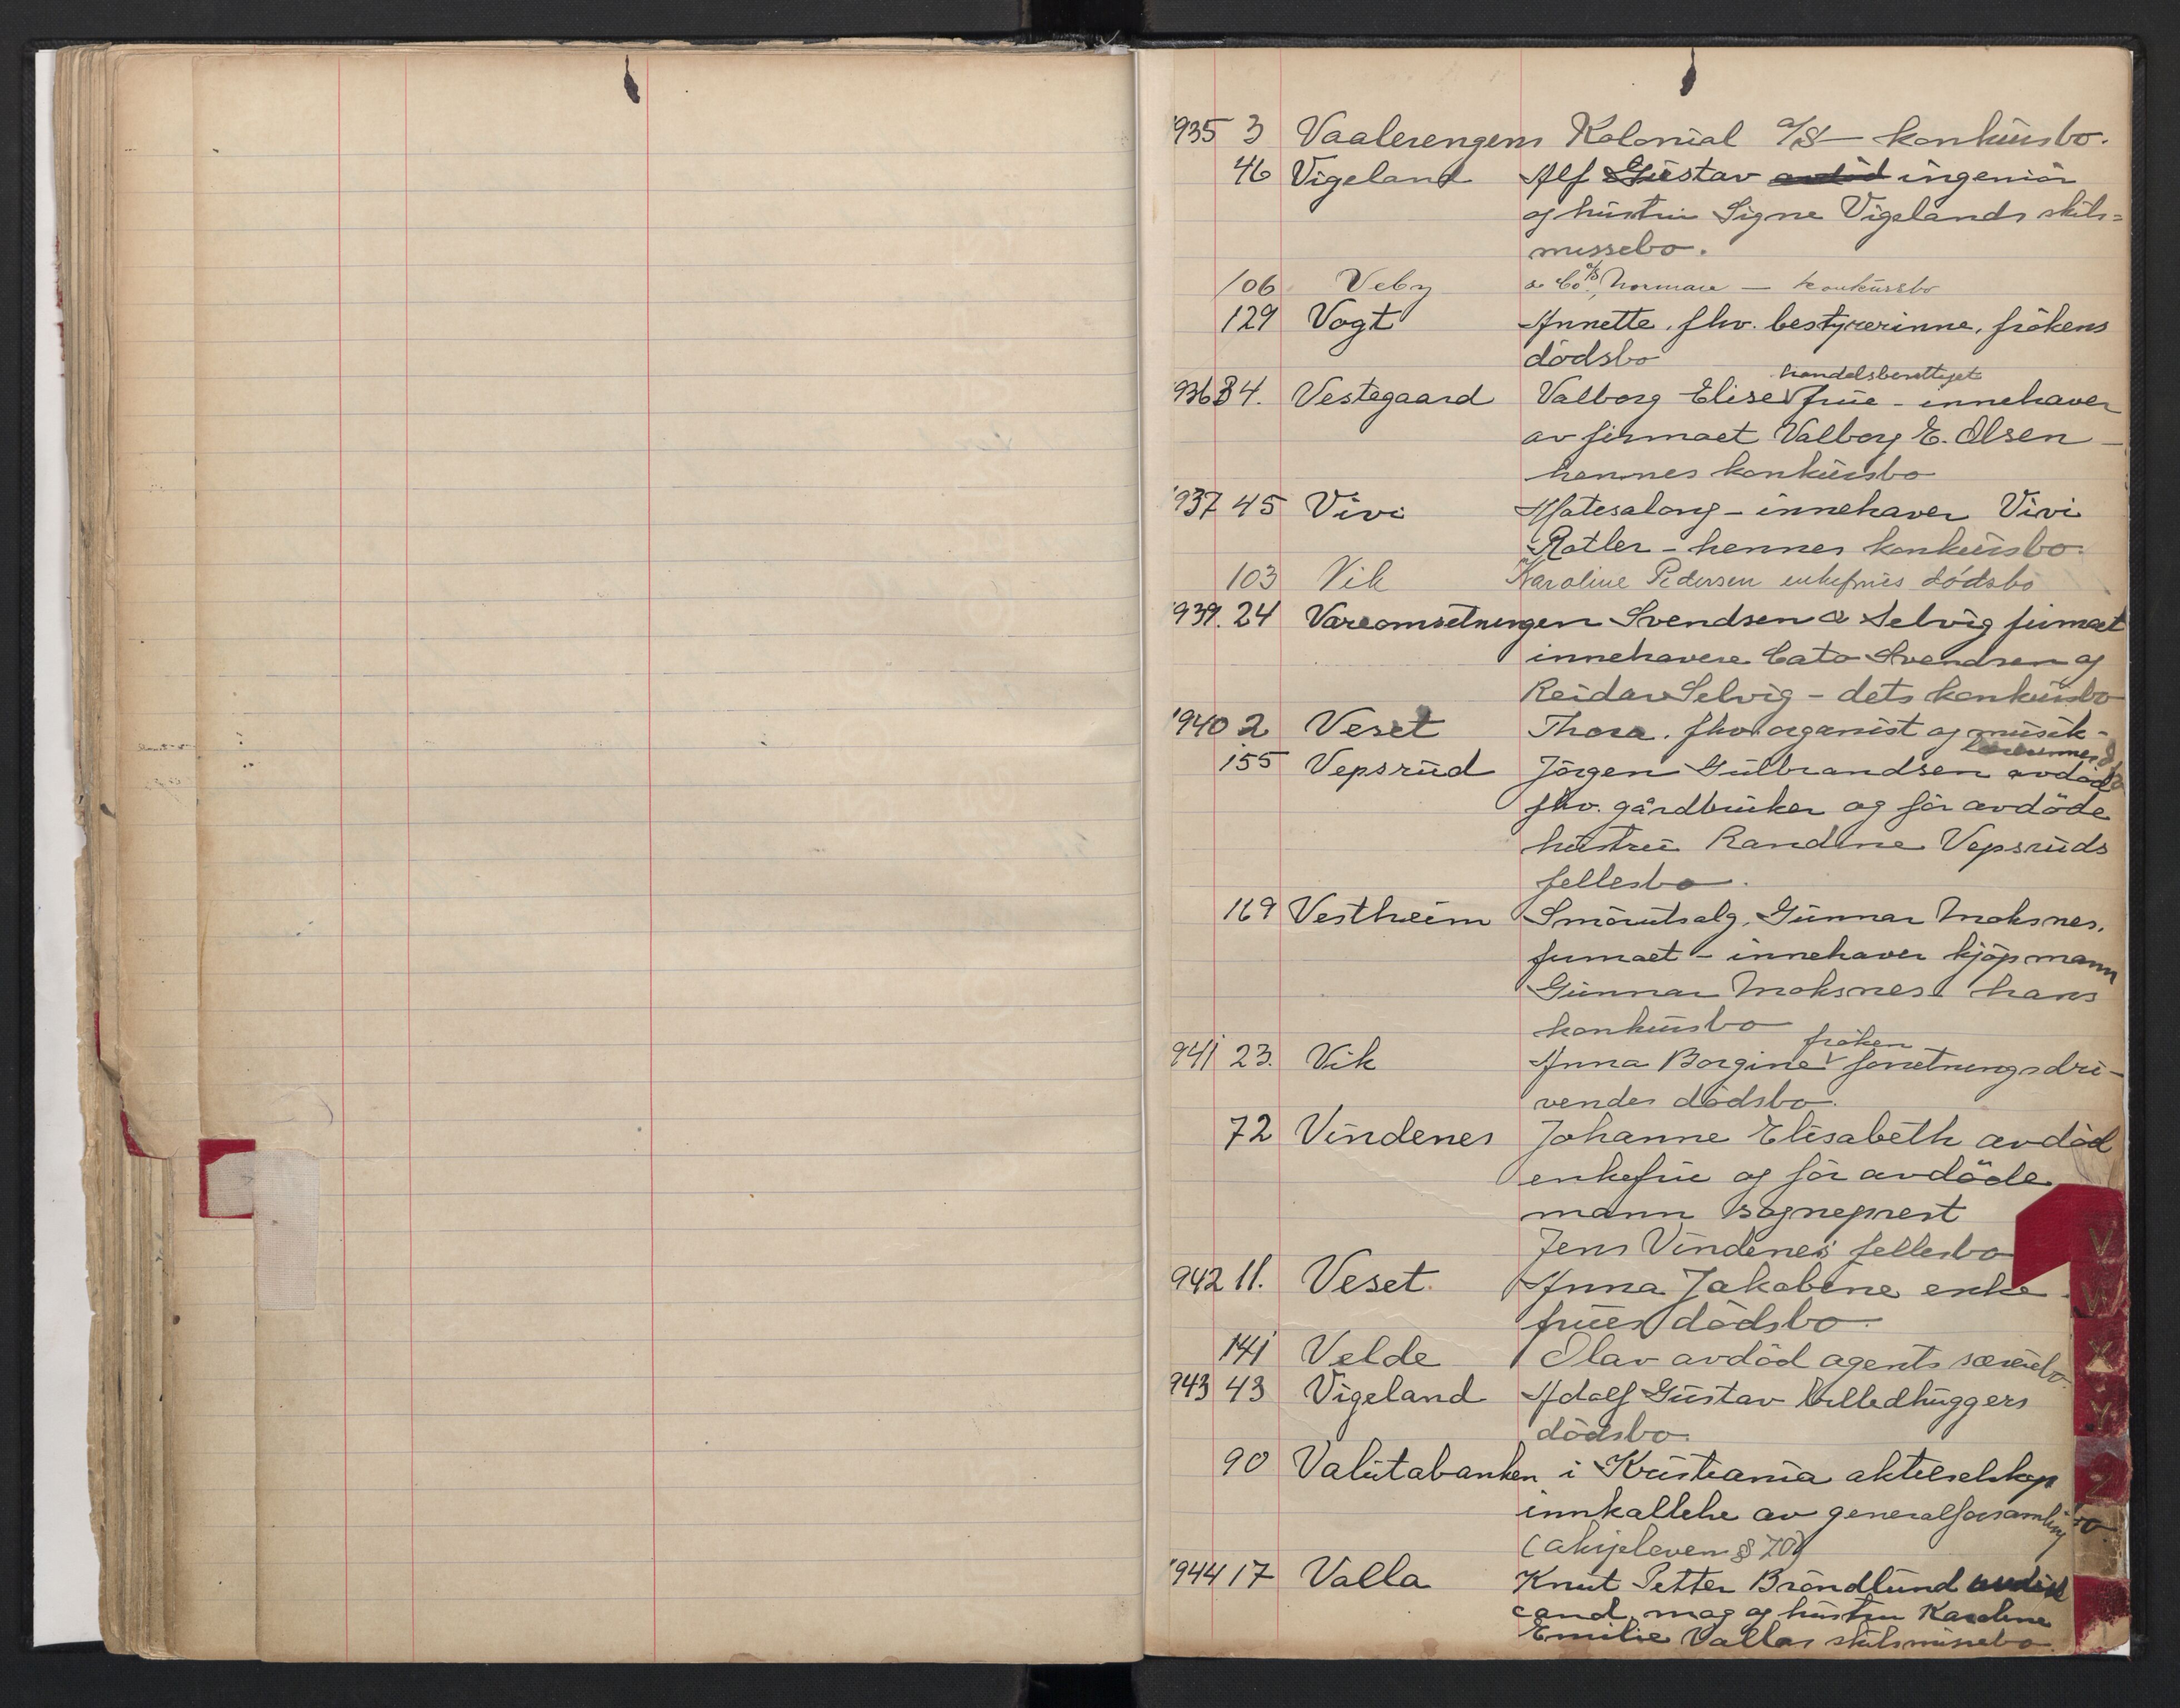 1935 3 Vaalerengens Kolonial A/S — konkursbo.
46 Vigeland Alf Gustav ingeniör
og hustru Signe Vigelands skils=
missebo.
106 Veby & Co. A/S, — konkursbo
129 Vogt Annette, fhv. bestyrerinne, frökens
dödsbo
handelsberettiget
1936 34. Vestegaard Valborg Elise frue - innehaver
av firmaet Valborg E. Olsen —
hennes konkursbo
1937 45 Vivi Hatesalong - innehaver Vivi
Rotler - hennes konkursbo.
103 Vik Karoline Pedersen enkefrues dödsbo
1939. 24 Vareomsetningen Svendsen & Selvig firmaet
innehavere Cato Svendsen og
Reidar Selvig - dets konkursbo
1940 2 Veset Thora. fhv. organist og musik-
lærerinnes
155 Vepsrud Jörgen Gulbrandsen avdöd
fhv. gårdbruker og för avdöde
hustru Randine Vepsruds
fellesbo.
169 Vestheim Smörutsalg, Gunnar Moksnes,
firmaet - innehaver kjöpmann
Gunnar Moksnes hans
konkursbo
fröken
1941 23. Vik Anna Borgine forretningsdri-
vendes dödsbo.
72 Vindenes Johanne Elisabeth avdöd
enkefrue og för avdöde
mann sogneprest
Jens Vindenes fellesbo
1942 11. Veset. Anna Jakobine enke-
frues dödsbo.
141 Velde Olav avdöd agents særeiebo.
1943 43 Vigeland Adolf Gustav billedhuggers
dödsbo.
90 Valutabanken i Kristiania aktieselskap
innkallelse av generalforsamling
(aksjeloven § 70)
1944 17 Valla Knut Petter Bröndlund
cand. mag og hustru Karoline
Emilie Vallas skilsmissebo.
V
W
X
Y
Z
Ø